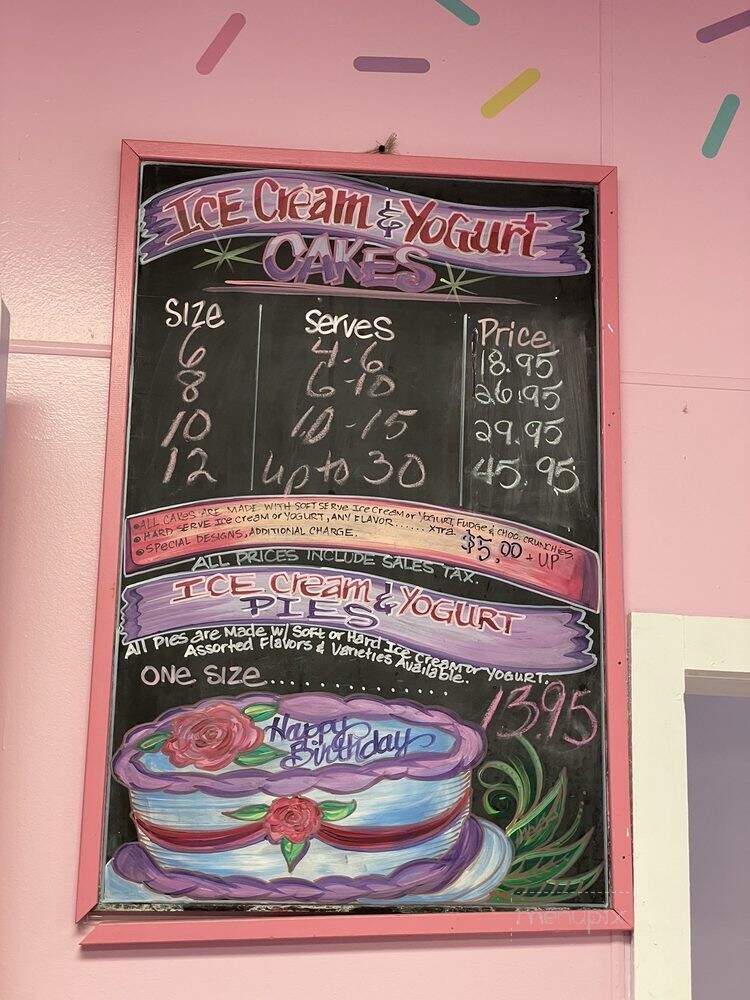 Ice Cream & Yogurt
CAKES
Size Serves Price
6 4-6 18.95
8 6-10 26.95
10 10-15 29.95
12 up to 30 45.95
•ALL CAKES ARE MADE WITH SOFT SERVE ICE CREAM or YOGURT, FUDGE & CHOC. CRUNCHIES.
•HARD SERVE ICE CREAM OR YOGURT, ANY FLAVOR...... xtra $5.00 + UP
•SPECIAL DESIGNS, ADDITIONAL CHARGE.
ALL PRICES INCLUDE SALES TAX.
ICE Cream & YOGURT
PIES
All Pies are Made w/ Soft or Hard Ice Cream or YOGURT.
Assorted Flavors & Varieties Available.
ONE SIZE.............. 13.95
Happy
Birthday
menupix